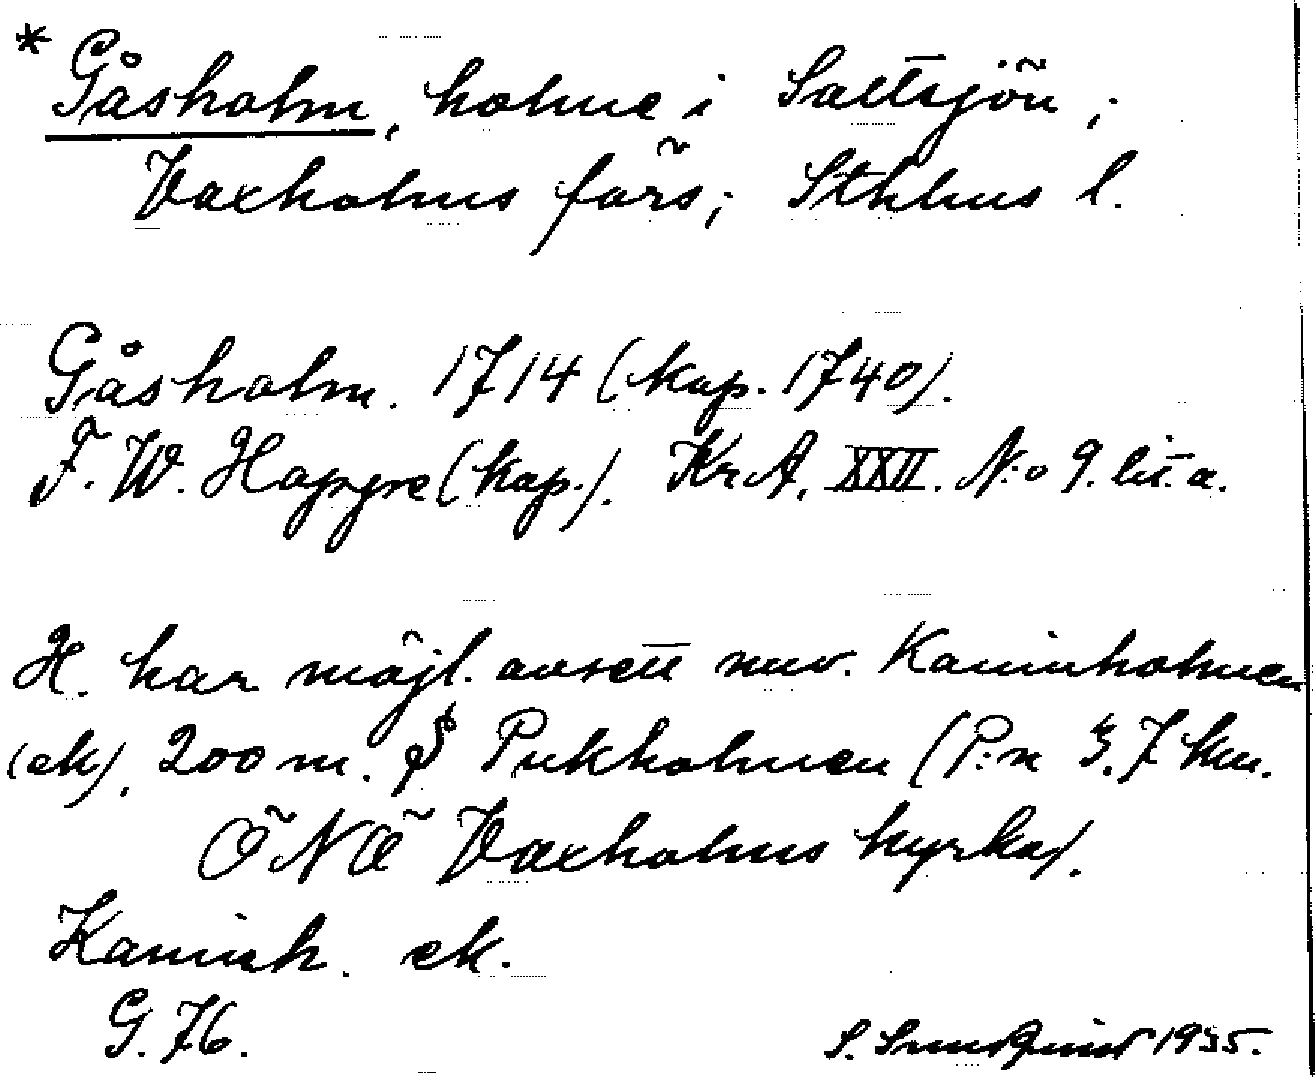 * Gåsholm, holme i Saltsjön;
Vaxholms förs; Sthlms l.
Gåsholm. 1714 (kop. 1740).
F. W. Happe (kop.). KrA. XXII. N:o 9. lit. a.
H. har möjl. avsett nuv. Kaninholmen
(ek), 200 m. S Pukholmen (P:n 3.7 km.
ÖNÖ Vaxholms kyrka).
Kaninh. ek.
G. 76.
S. 1935.